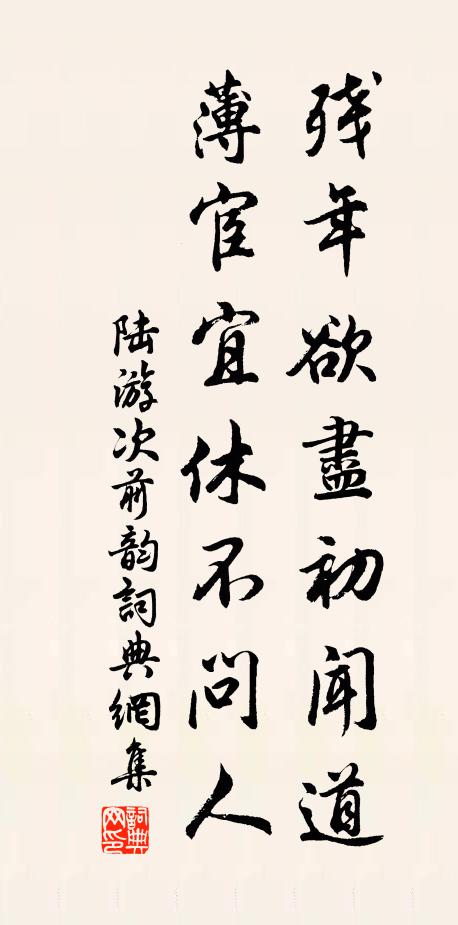 残年欲盡初聞道
薄宦宜休不問人
陆游次前韵詞典網集
詞典网印